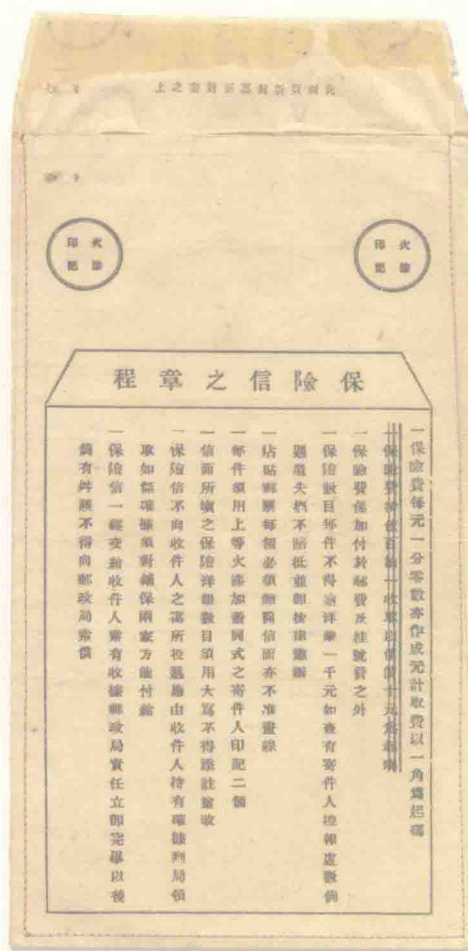 此封頂折封蓋面對齊之上
火漆印記
火漆印記
保險信之章程
一保險費每元一分零數亦作成元計取費以一角爲起碼
一保險費係加付於郵費及挂號費之外
一保險數目每件不得逾洋銀一千元如查有寄件人揑報虛數倘
遇遺失槪不賠抵並卽按律懲辦
一粘貼郵票每個必須離開信面亦不准畫線
一每件須用上等火漆加蓋同式之寄件人印記二個
一信面所塡之保險洋銀數目須用大寫不得添註塗改
一保險信不向收件人之寓所投遞應由收件人持有確據到局領
取如無確據須對鋪保兩家方能付給
一保險信一經交給收件人索有收據郵政局責任立卽完畢以後
倘有舛誤不得向郵政局索償